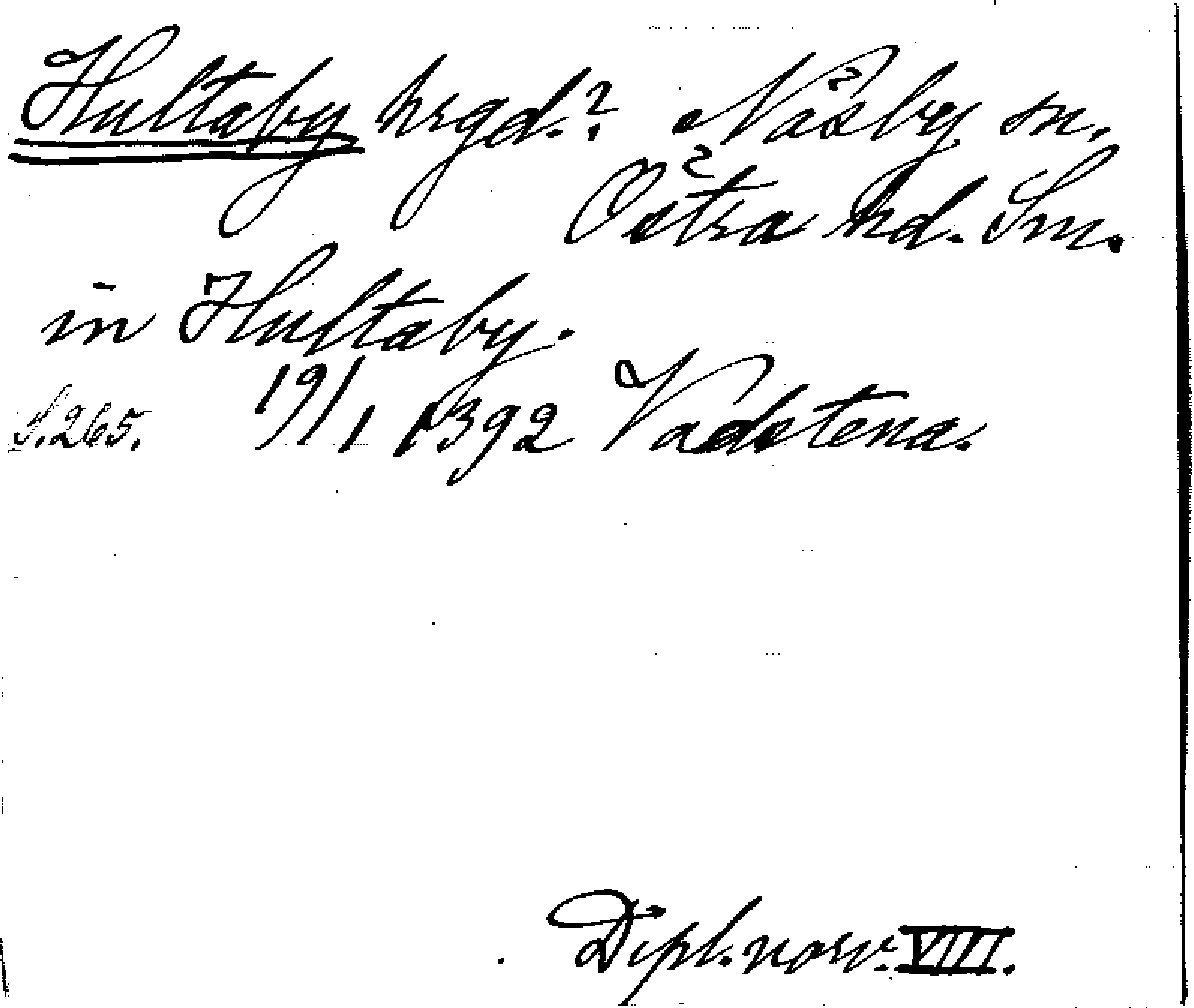 Hultaby hrgd.? Näsby sn.
Östra hd. Sm.
in Hultaby.
S. 265. 19/1 1392 Vadstena.
Dipl. norv. VIII.